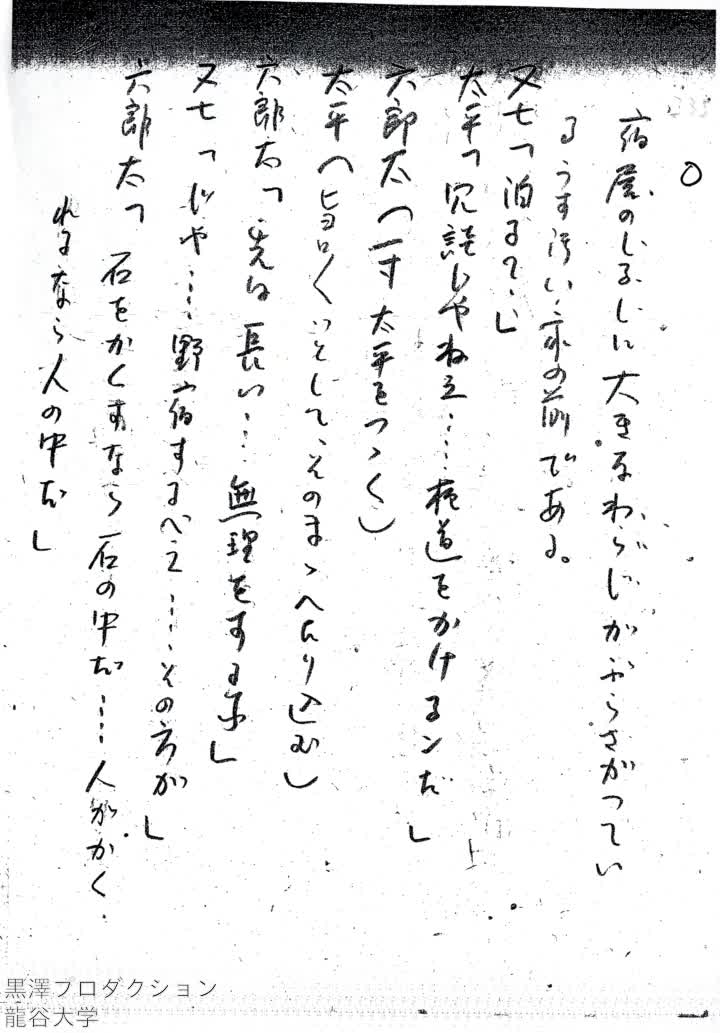 ○
宿屋のしるしに大きなわらじがぶらさがつてい
るうす汚い家の前である。
又七「泊るて…」
太平「冗談じやねえ……夜道をかけるンだ」
六郎太(一寸太平をつゝく)
太平(旨く いとして、そのまゝへたり込む)
六郎太「先は長い……無理をするな」
又七「じや……野宿するべえ……その方が」
六郎太「石をかくすなら石の中だ……人がかく
れるなら人の中だ」
黒澤プロダクション
龍谷大学